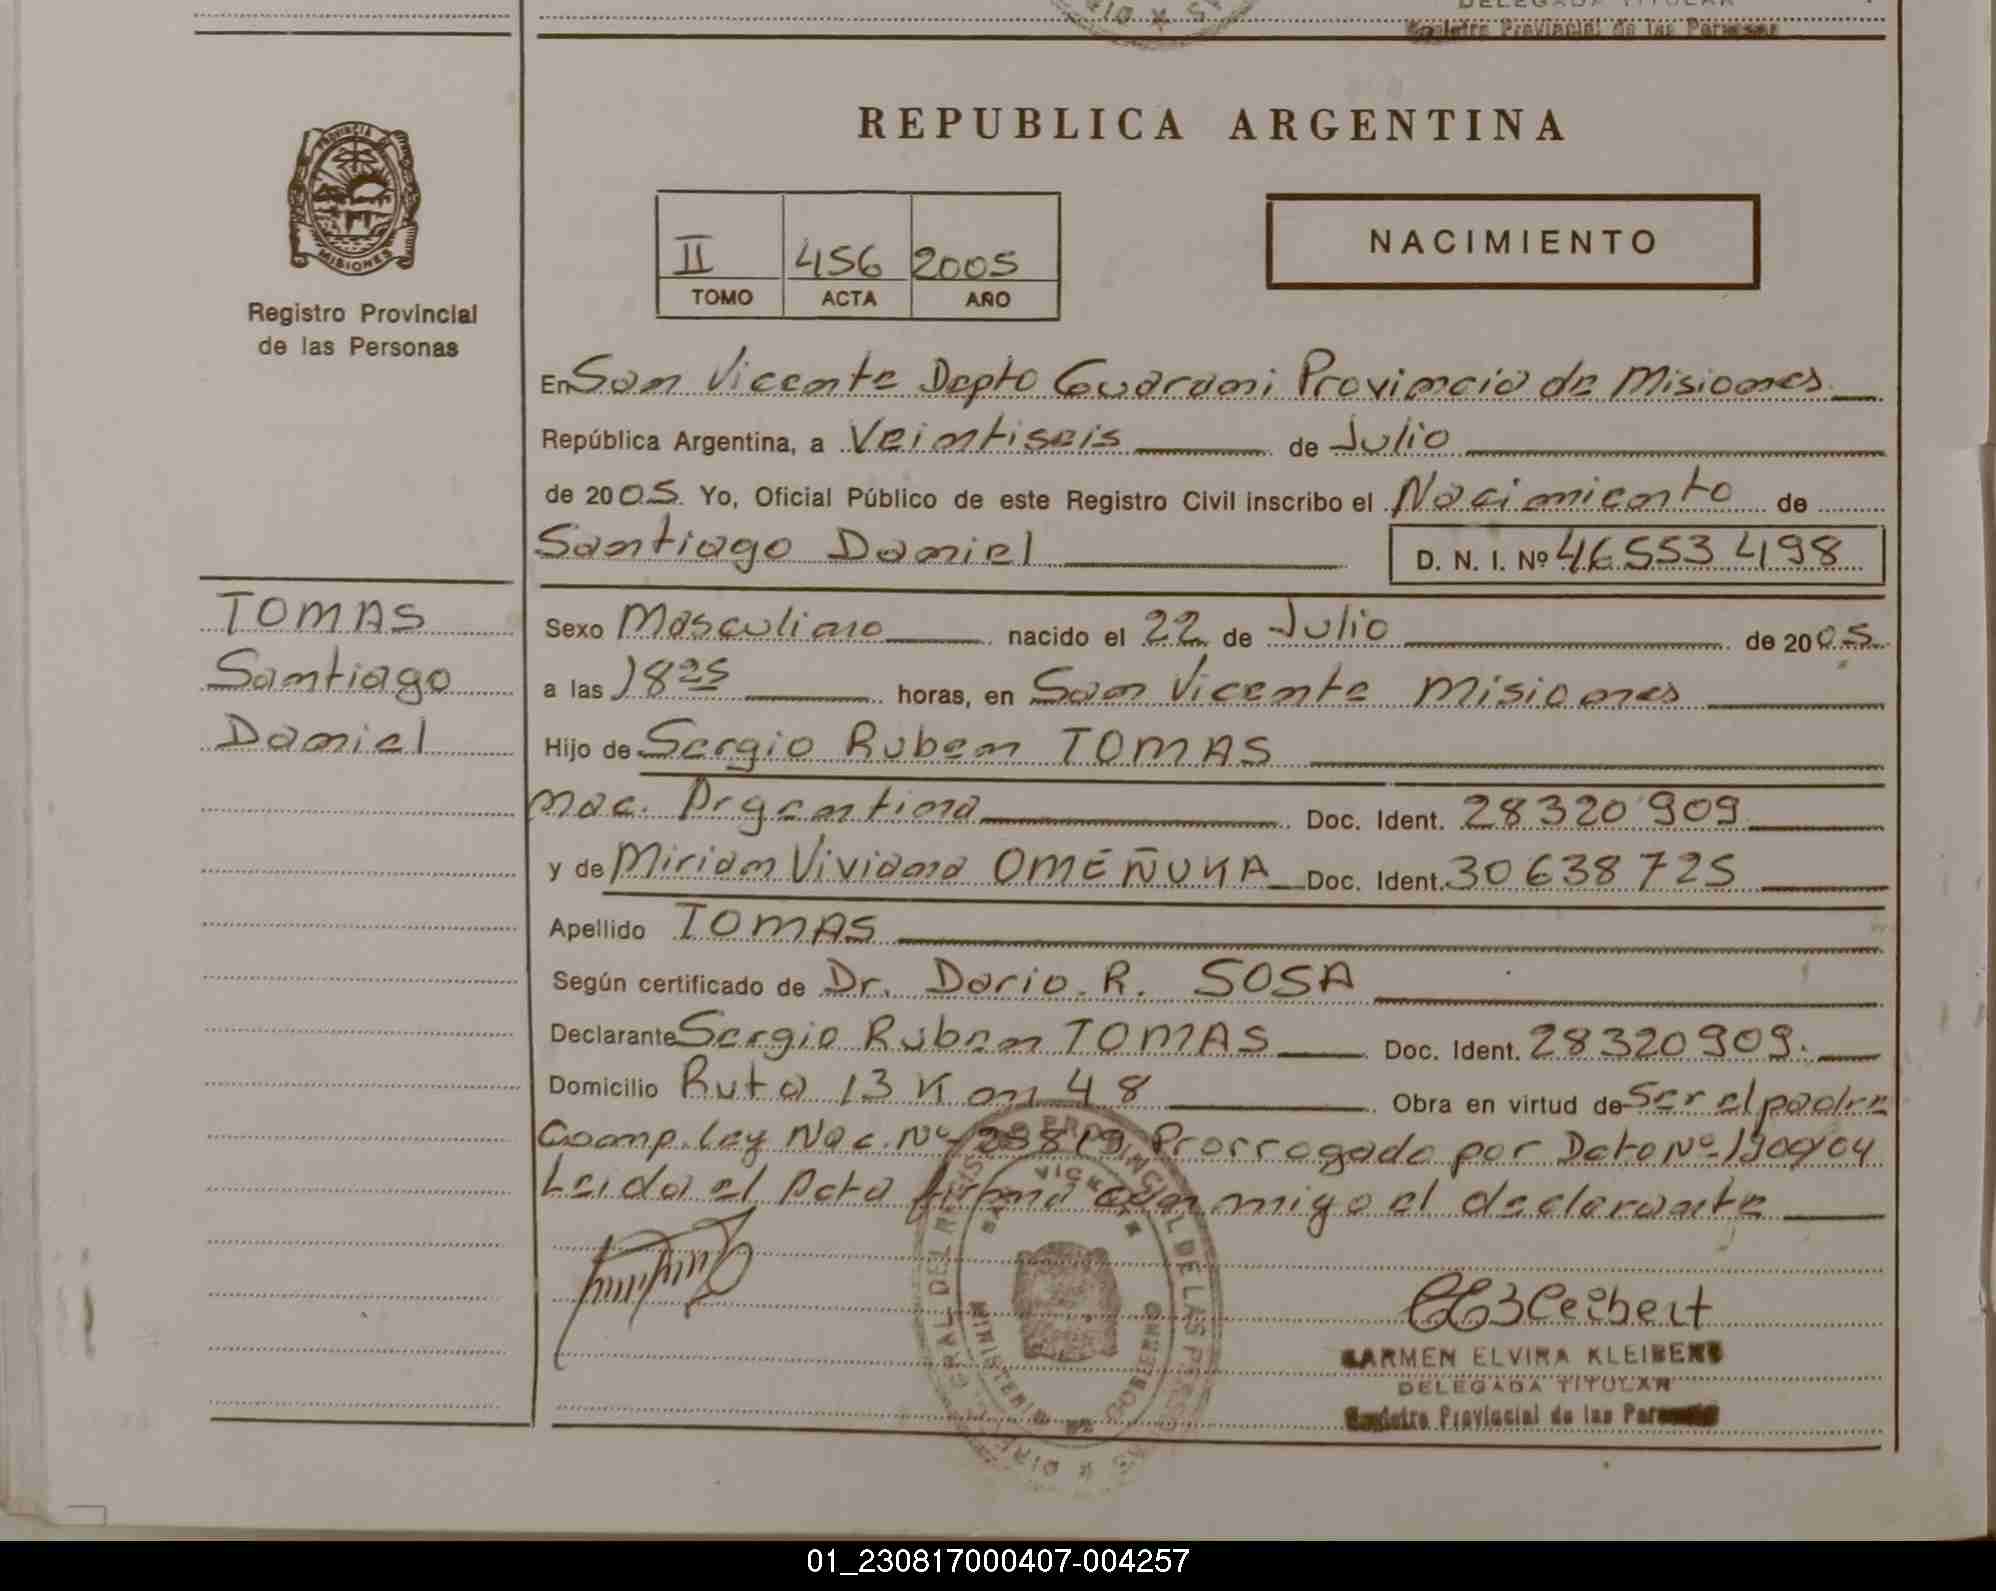 DELEGADA TITULAR
Registro Provincial de las Personas
REPUBLICA ARGENTINA
PROVINCIA
MISIONES
Registro Provincial
de las Personas
II 456 2005
TOMO ACTA AÑO
NACIMIENTO
En San Vicente Depto Guarani Provincia de Misiones
República Argentina, a Veintiseis de Julio
de 2005. Yo, Oficial Público de este Registro Civil inscribo el Nacimiento de
Santiago Daniel D. N. I. Nº 46553498
TOMAS
Santiago
Daniel
Sexo Masculino nacido el 22 de Julio de 2005
a las 18 25 horas, en San Vicente Misiones
Hijo de Sergio Ruben TOMAS
Nac. Argentina Doc. Ident. 28320909
y de Miriam Viviana OMEÑUKA Doc. Ident. 30638725
Apellido TOMAS
Según certificado de Dr. Dario R. SOSA
Declarante Sergio Ruben TOMAS Doc. Ident. 28320909.
Domicilio Ruta 13 Km 48 Obra en virtud de Ser el padre
Comp. Ley Nac. Nº 25819 Prorrogado por Dcto Nº 1900/04
Leida el Acta firma conmigo el declarante
SAN VICENTE
MINISTERIO DE GOBIERNO
CARMEN ELVIRA KLEIBERT
DELEGADA TITULAR
Registro Provincial de las Personas
01_230817000407-004257